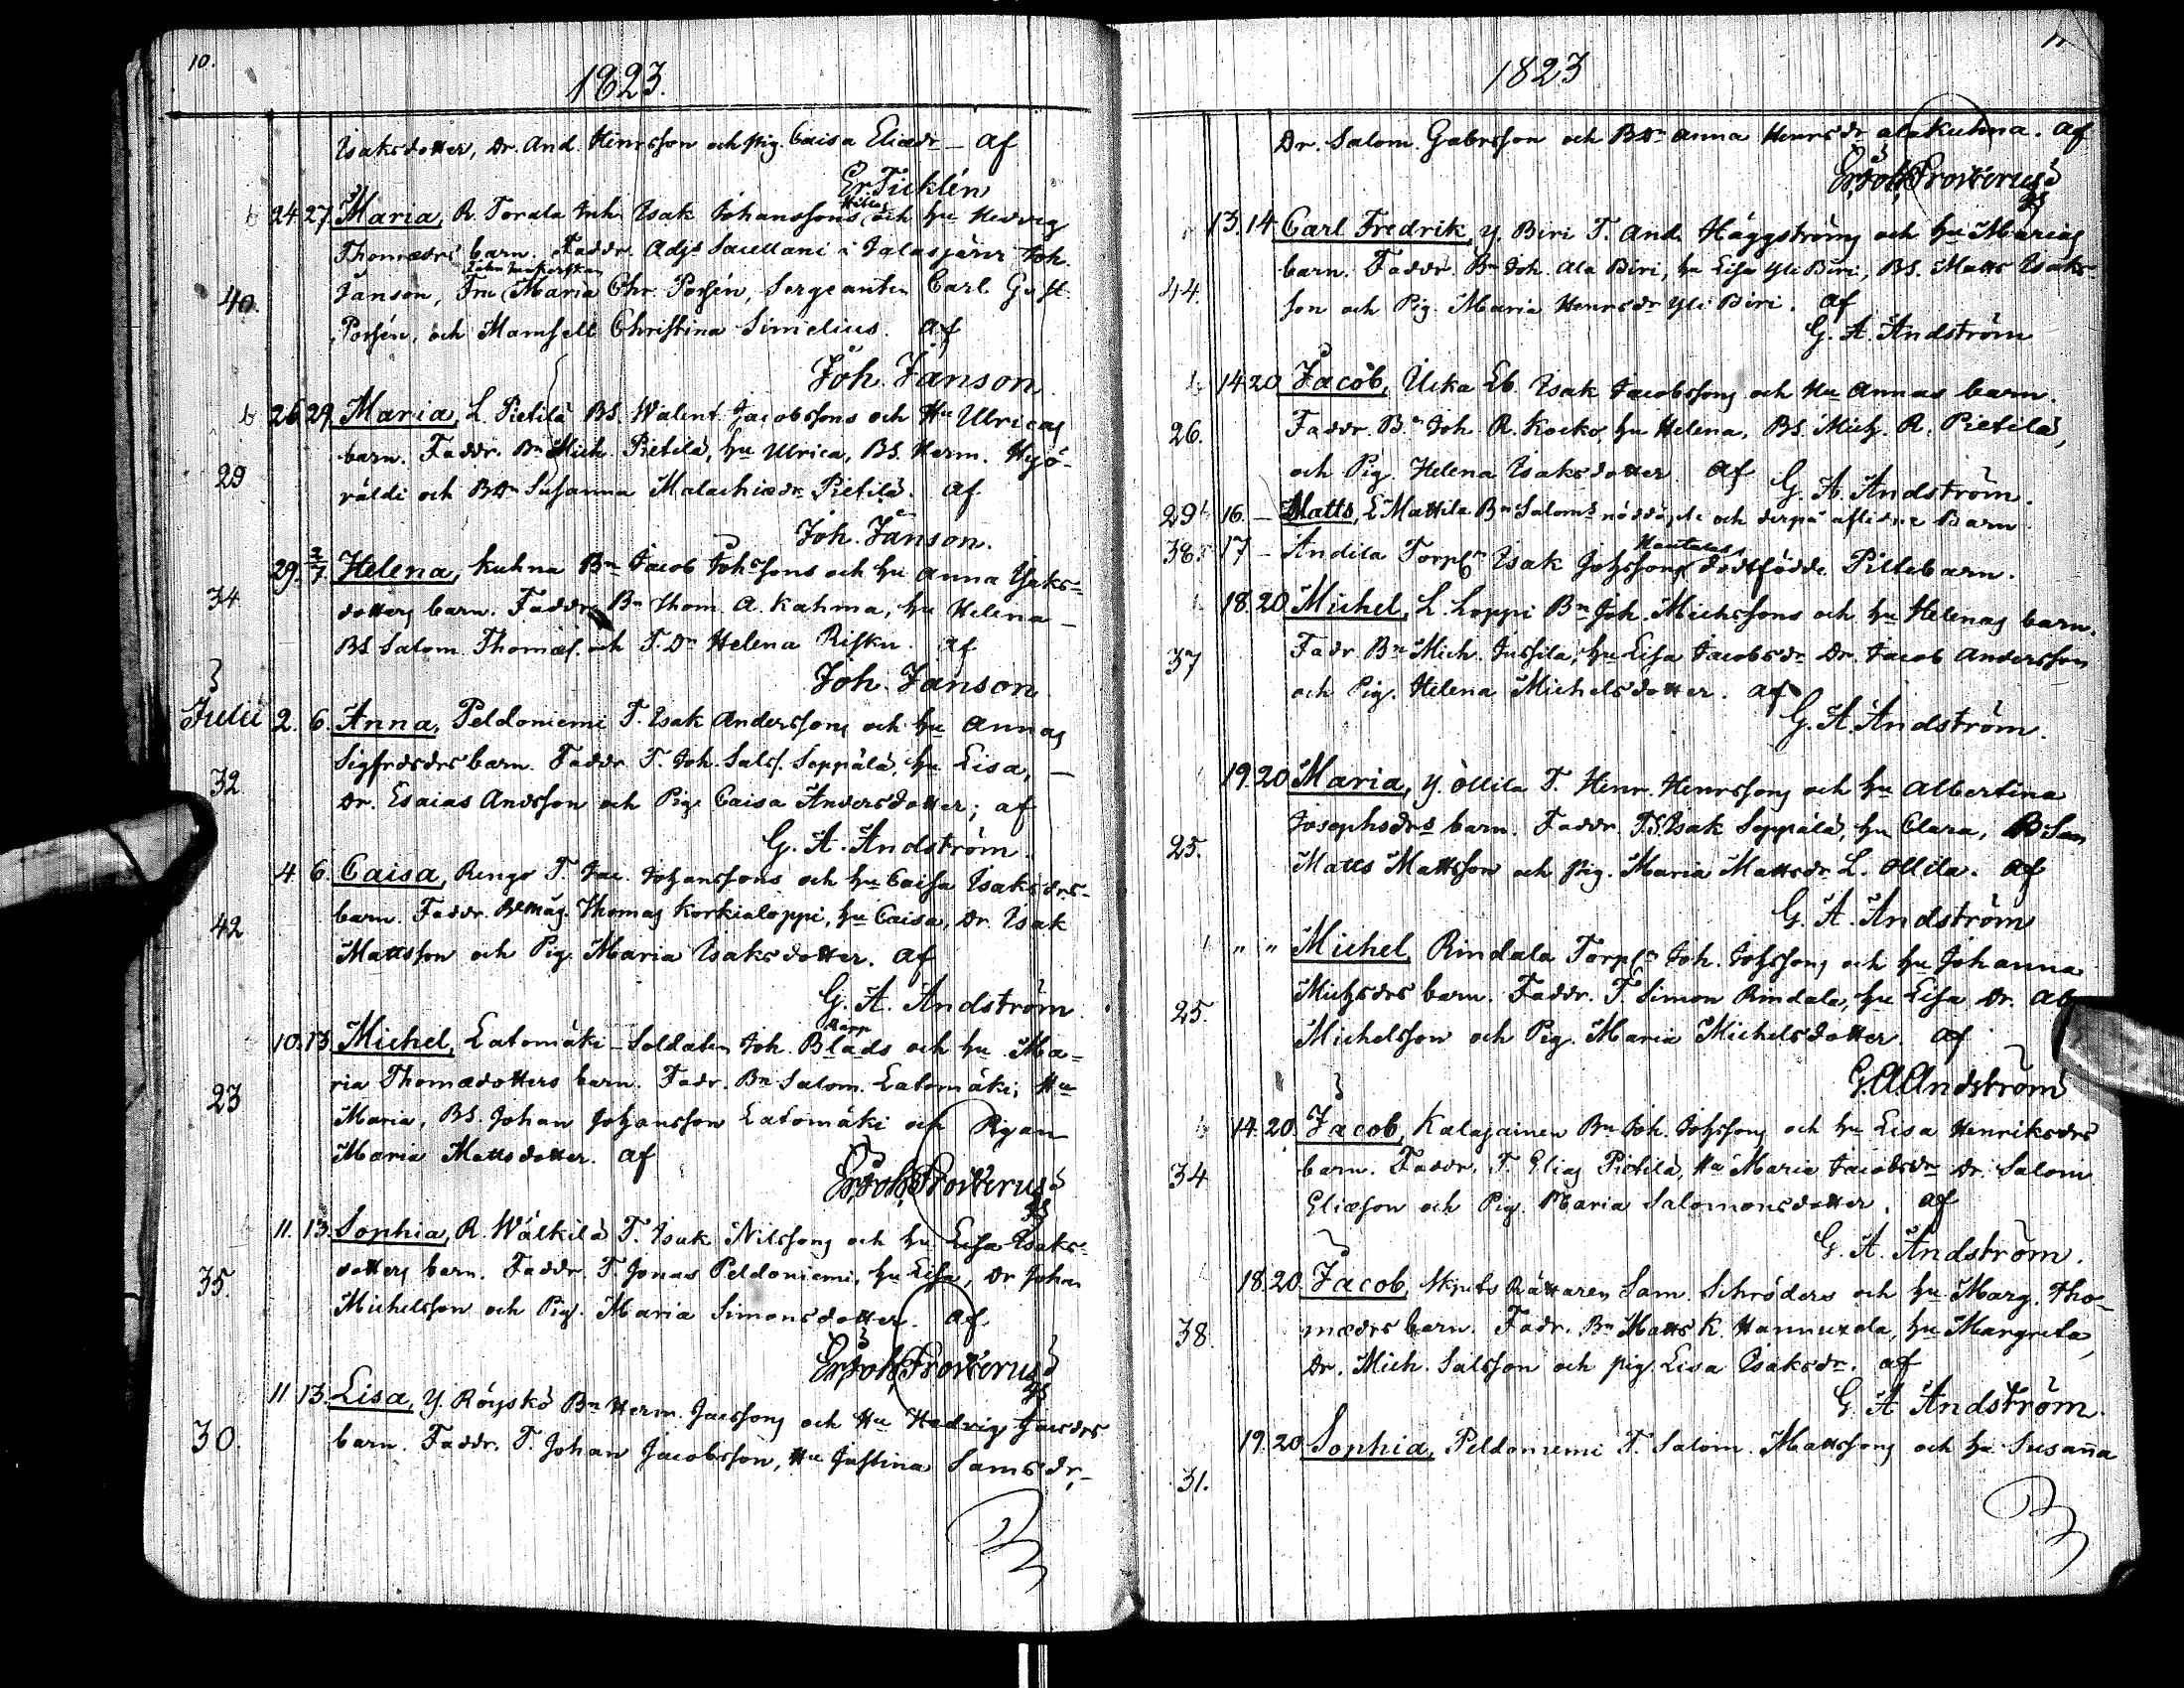 10.
1823.
Isaksdotter, Dr. And. Henrsson och pig. Caisa Eliædr – af
Er. Ticklén
24. 27. Maria, R. Torala Inh. Isak Johanssons och hu Hedvig
Thomædrs barn. Faddr. Adjs Sacellani i Jalasjärvi Joh.
40. Janson, Fru Maria Chr. Porsén, Sergeanten Carl Gust.
Porsén, och Mamsell Christina Simelius. af
Joh. Janson
26. 29. Maria, L. Pietilä BS. Walent. Jacobssons och Hu Ulricas
barn. Faddr. Bn Mich. Pietilä, hu Ulrica, BS. Herm. Hyö-
29 väldi och BDr Susanna Malachiædr Pietilä. af
Joh. Janson.
29. 2/7. Helena, Kuhna Bn Jacob Johssons och hu Anna Isaks-
34 dotters barn. Faddr. Bn Thom. A. Kahma, hu Helena –
BS Salom. Thomæs. och T. Dr Helena Risku. af
Joh. Janson
Julii 2. 6. Anna, Peldoniemi T. Isak Anderssons och hu Annas
Sigfrdsdrs barn. Faddr. T. Joh. Sals. Seppälä, hu Lisa, –
32 Dr. Esaias Andsson och Pig. Caisa Andersdotter; af
G. A. Andström.
4. 6. Caisa, Rengo T. Jac. Johanssons och hu Caisa Isaksdrs-
barn. Faddr. Bmåg. Thomas Korkialoppi, hu Caisa, Dr. Isak
42 Mattsson och Pig. Maria Isaksdotter. af
G. A. Andström
Rapp
10. 13. Michel, Latomäki – Soldaten Joh. Blads och hu Ma-
ria Thomædotters barn. Fadr. Bn Salom. Latomäki, Hu
23 Maria, BS. Johan Johansson Latomäki och Pigan
Maria Mattsdotter. af
Er. Joh. Frosterus
11. 13. Sophia, R. Wälkilä T. Isak Nilssons och hu Lisa Isaks-
35. dotters barn. Faddr. T. Jonas Peldoniemi, hu Lisa, Dr Johan
Michelsson och Pig. Maria Simonsdotter. af
Er. Joh. Frosterus
11. 13. Lisa, Y. Röyskö Bn Herm. Jacssons och Hu Hedvig Jacsdrs
30. barn. Faddr. T. Johan Jacobsson, Hu Justina Samsdr,
11
1823
Dr. Salom. Gabrsson och BDr Anna Henrsdr alakuhna. af
Er. Joh. Frosterus
13. 14. Carl Fredrik, Y. Biri T. And. Häggströms och hu Marias
barn. Faddr. Bn Joh. Ala Biri, hu Lisa Yli Biri, BS. Matts Isaks-
44. son och Pig. Maria Henrsdr Yli Biri. af
G. A. Andström
14. 20. Jacob, Ucka Eb. Isak Jacobssons och Hu Annas barn.
26. Faddr. Bn Joh. R. Kocko, hu Helena, BS. Mich. R. Pietilä,
och Pig. Helena Isaksdotter. af G. A. Andström.
29 16. – Matts, L. Mattila Bn Saloms nöddöpte och derpå aflidne Barn.
38. 17 – Andila Torpn Isak Johssons dödfödde Piltebarn.
18. 20. Michel, L. Loppi Bn Joh. Michssons och hu Helenas barn.
37 Fadr. Bn Mich. Jussila, hu Lisa Jacobsdr Dr. Jacob Andersson
och Pig. Helena Michelsdotter. af
G. A. Andström.
19. 20. Maria, Y. Ollila T. Henr. Henrssons och hu Albertina
Josephsdrs barn. Faddr. T.S. Isak Seppälä, hu Clara, B Son
25. Matts Mattsson och pig. Maria Mattsdr L. Ollila. af
G. A. Andström
" " Michel Rindala Torpn Joh. Johssons och hu Johanna
Michsdrs barn. Faddr. T. Simon Rindala, hu Lisa Dr.
25. Michelsson och Pig. Maria Michelsdotter. af
G. A. Andström
14. 20. Jacob, Kalajainen Bn Joh. Johssons och hu Lisa Henriksdrs
34 barn. Faddr. T. Elias Pietilä, Hu Maria Jacobsdr Dr. Salom
Eliæson och Pig. Maria Salomonsdotter. af
G. A. Andström.
18. 20. Jacob, Skjuts Rättaren Sam. Schröders och hu Marg. Tho-
38. mædrs barn. Fadr. Bn Matts K. Hannuxela, hu Margreta,
Dr. Mich. Salsson och pig. Lisa Isaksdr. af
G. A. Andström.
19. 20. Sophia, Peldoniemi T. Salom. Mattssons och hu Susanna
31.